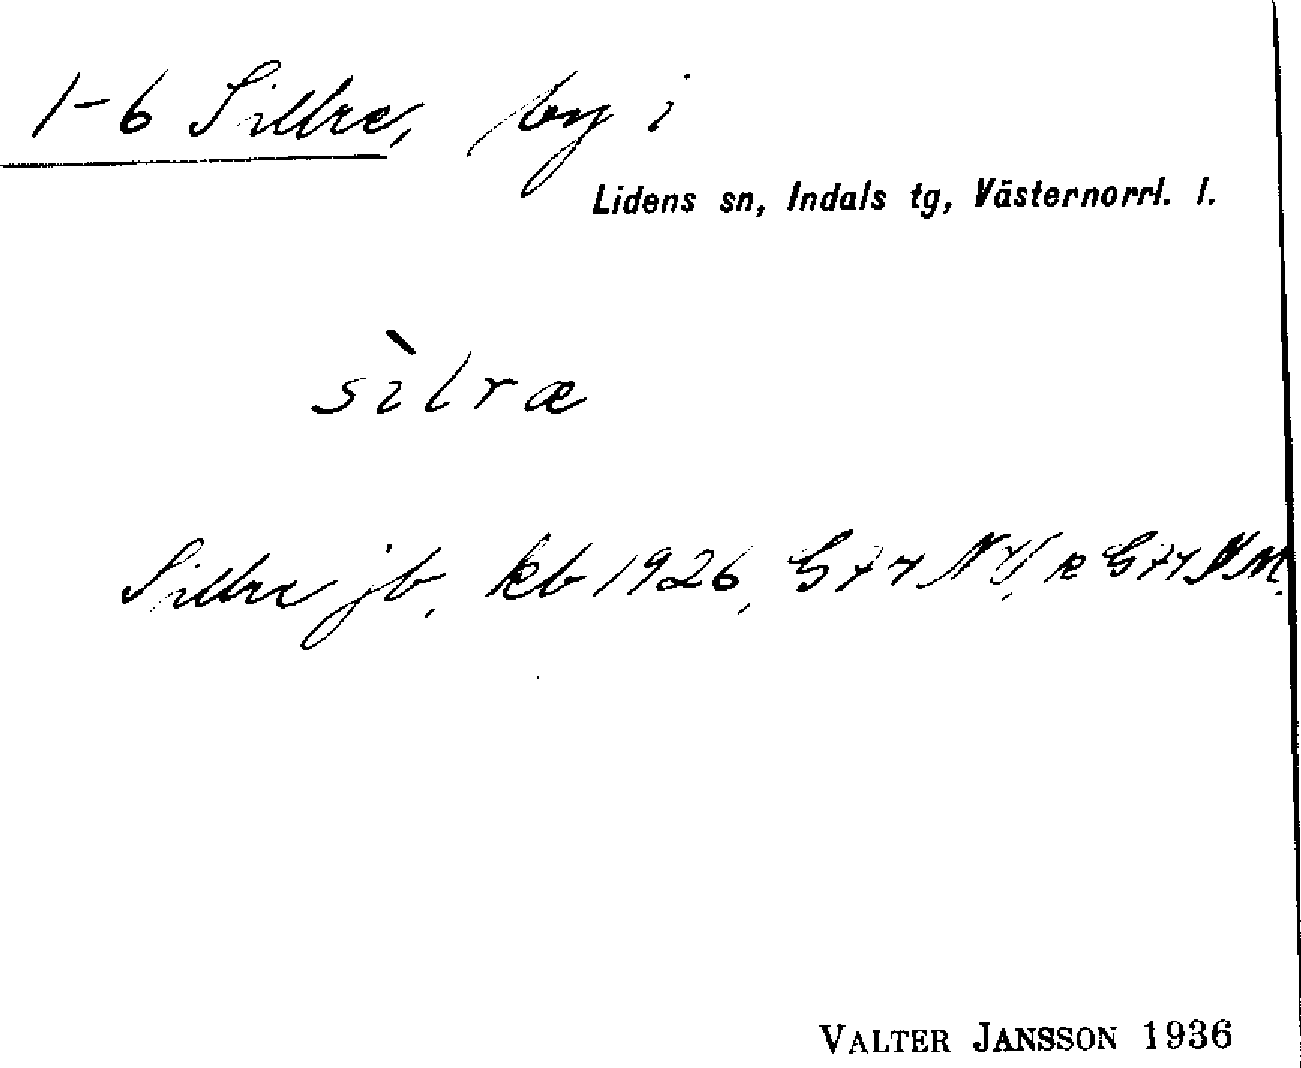 1-6 Sillre, by i
Lidens sn, Indals tg, Västernorrl. l.
sìlræ
Sillre jb, kb 1926,
VALTER JANSSON 1936